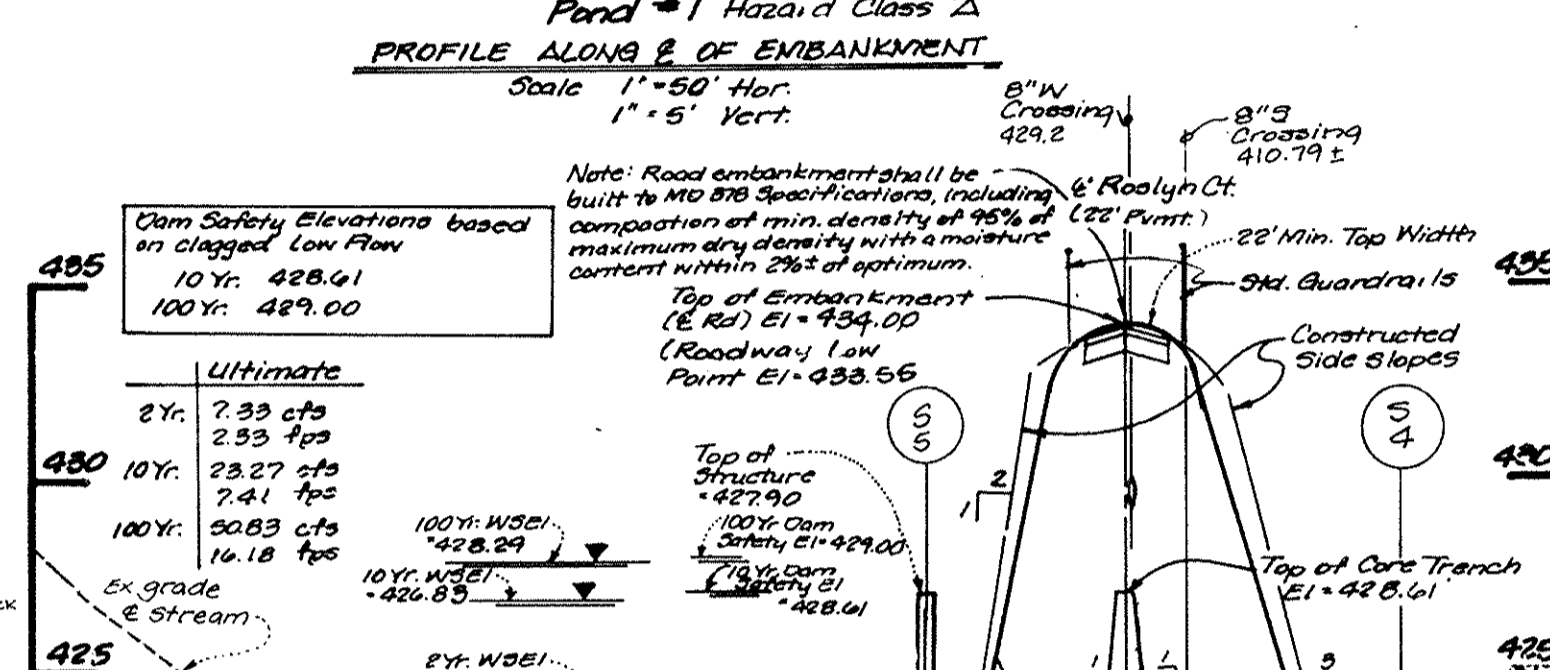 Pond #1 Hazard Class A
PROFILE ALONG ℄ OF EMBANKMENT
Scale 1"=50' Hor.
1" = 5' Vert.
8"W
Crossing
429.2
8"S
Crossing
410.79 ±
Note: Road embankment shall be
built to MD 378 Specifications, including
compaction of min. density of 95% of
maximum dry density with a moisture
content within 2%± of optimum.
℄ Roslyn Ct.
(22' Pvmt.)
22' Min. Top Width
Std. Guardrails
Dam Safety Elevations based
on clogged Low Flow
10 Yr. 428.61
100 Yr. 429.00
435
435
Top of Embankment
(℄ Rd) El = 434.00
(Roadway low
Point El = 433.56
Constructed
Side Slopes
Ultimate
2 Yr. 7.33 cfs
2.33 fps
10 Yr. 23.27 cfs
7.41 fps
100 Yr. 50.83 cfs
16.18 fps
S
5
S
4
430
430
Top of
Structure
=427.90
2
1
100 Yr. WSEl
=428.29
100 Yr Dam
Safety El=429.00
10 Yr. WSEl
=426.83
10 Yr. Dam
Safety El
=428.61
Top of Core Trench
El = 428.61
Ex grade
℄ Stream
425
425
2 Yr. WSEl
1
1
3